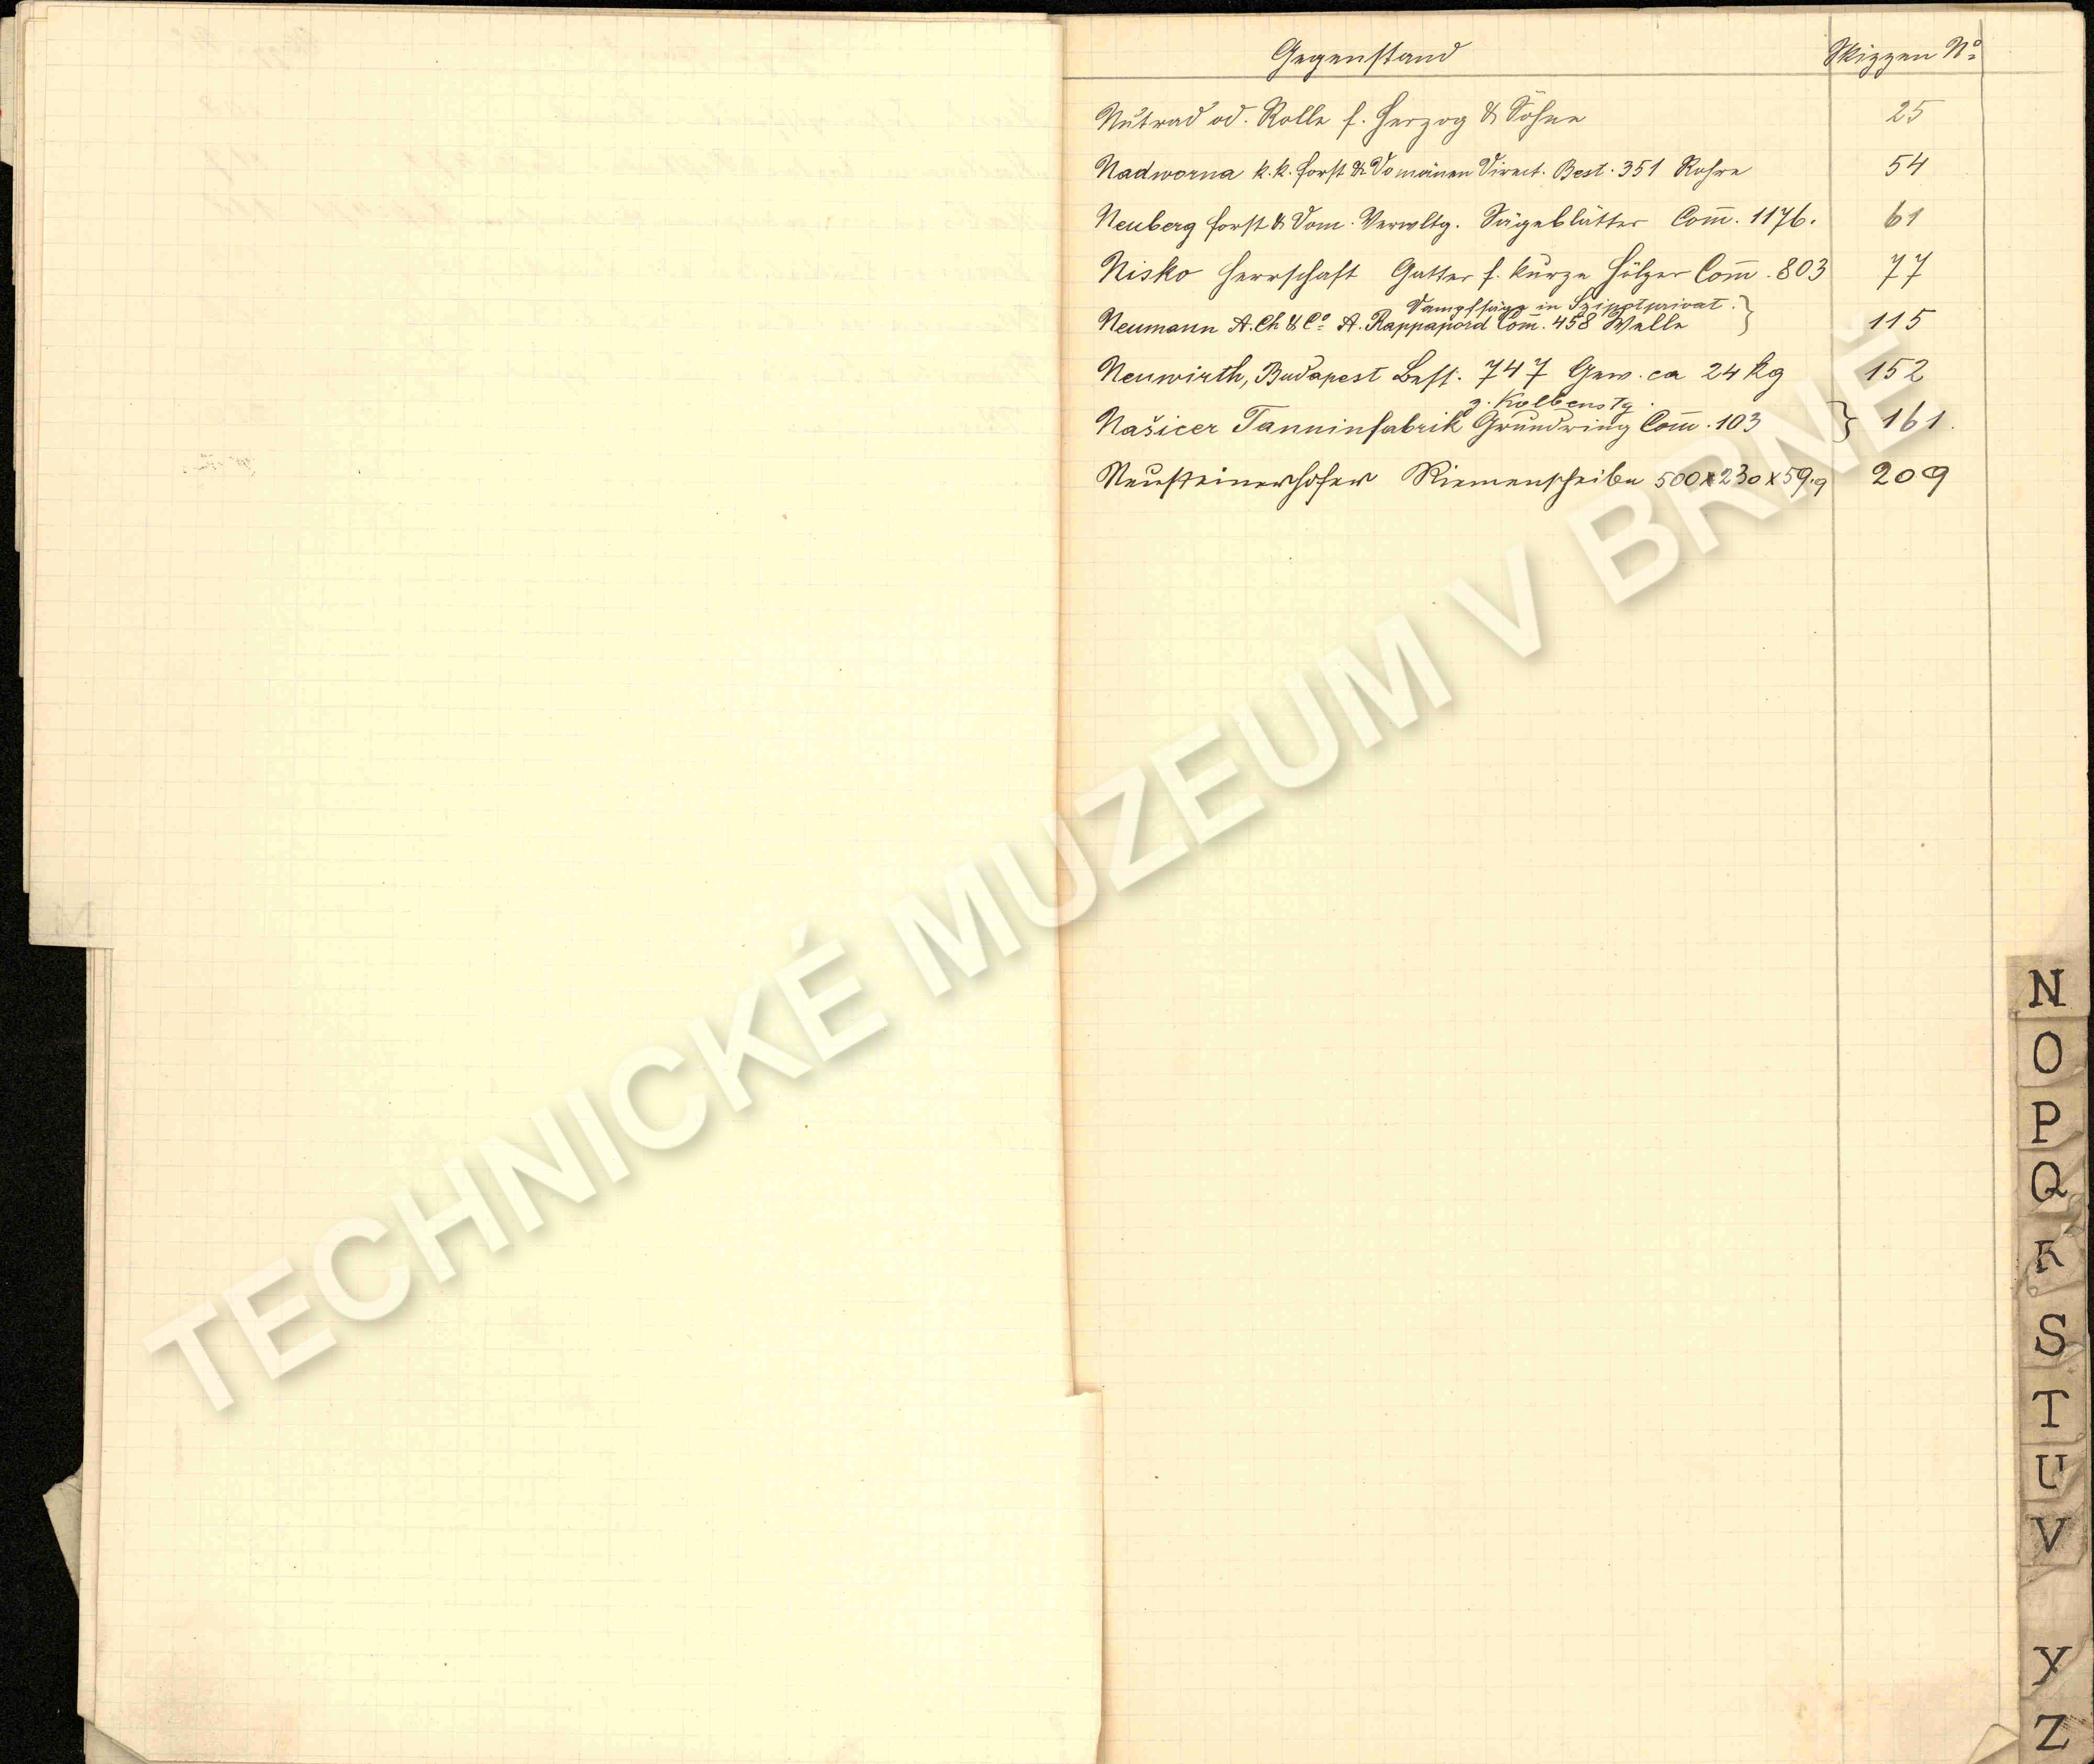 Gegenstand Skizzen No
Nutrad od. Rolle f. Herzog & Söhne 25
Nadworna k.k. Forst & Domänen Direct. Best. 351 Rohre 54
Neuberg Forst & Dom. Verwltg. Sägeblätter Com̅. 1176. 61
Nisko Herrschaft Gatter f. kurze Hölzer Com̅. 803 77
Dampfsäge in
Neumann A. Ch & Co A. Rappaport Com̅. 458 Welle } 115
Neuwirth, Budapest Best. 747 Gew. ca 24 kg 152
z. Kolbenstg.
Našicer Tanninfabrik Grundring Com̅. 103 } 161.
Neusteinerhofer Riemenscheibe 500x230x59.9 209
TECHNICKÉ MUZEUM V BRNĚ
M
N
O
P
Q
R
S
T
U
V
Y
Z